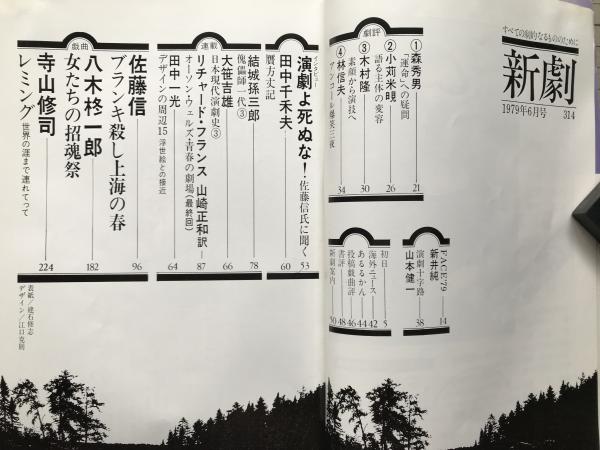 すべての劇的なるもののために
新劇
1979年6月号
314
劇評
①森秀男
「運命」への疑問
21
②小苅米晛
語る主体の変容
26
③木村隆
素顔から演技へ
30
④林信夫
アンコール爆笑三夜
34
FACE'79
新井純
14
演劇十字路
山本健一
38
初日
5
海外ニュース
42
あるるかん
44
投稿戯曲評
46
書評
48
新劇案内
50
インタビュー
演劇よ死ぬな!佐藤信氏に聞く
53
田中千禾夫
贋方丈記
60
連載
結城孫三郎
傀儡師一代③
78
大笹吉雄
日本現代演劇史③
66
リチャード・フランス 山崎正和訳
オーソン・ウェルズ・青春の劇場(最終回)
87
田中一光
デザインの周辺15 浮世絵との接近
64
戯曲
佐藤信
ブランキ殺し上海の春
96
八木柊一郎
女たちの招魂祭
182
寺山修司
レミング 世界の涯まで連れてって
224
表紙/建石修志
デザイン/江口克則